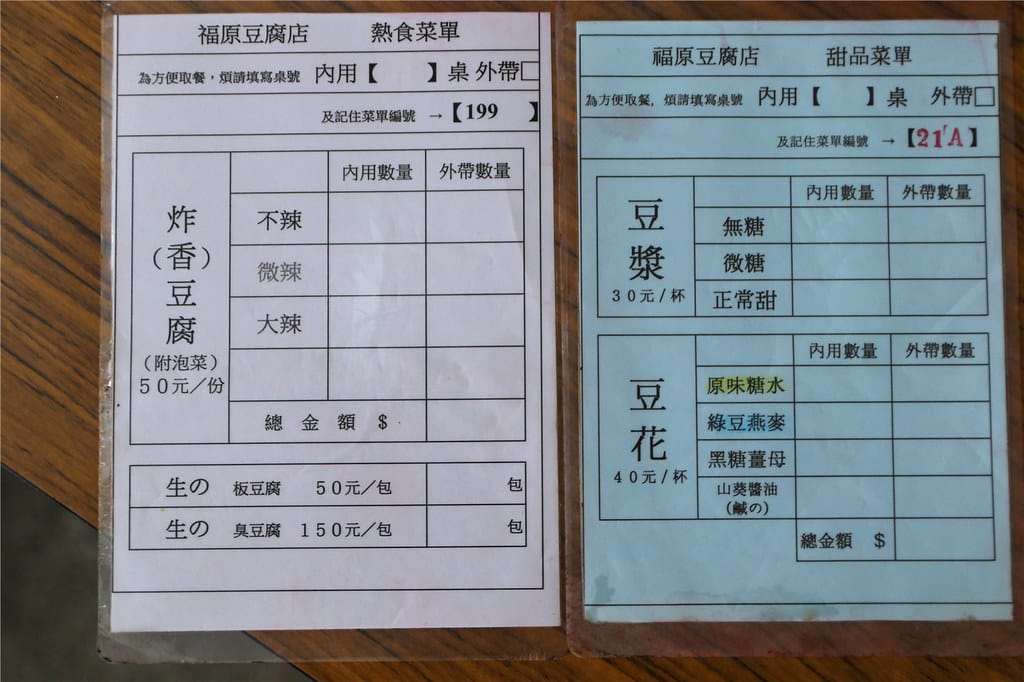 福原豆腐店 熱食菜單
為方便取餐，煩請填寫桌號 內用【 】桌 外帶□
及記住菜單編號 →【199 】
內用數量 外帶數量
炸（香）豆腐
（附泡菜）
50元／份
不辣
微辣
大辣
總金額 $
生の 板豆腐 50元／包 包
生の 臭豆腐 150元／包 包
福原豆腐店 甜品菜單
為方便取餐，煩請填寫桌號 內用【 】桌 外帶□
及記住菜單編號 →【21'A】
內用數量 外帶數量
豆漿
30元/杯
無糖
微糖
正常甜
內用數量 外帶數量
豆花
40元/杯
原味糖水
綠豆燕麥
黑糖薑母
山葵醬油
(鹹の)
總金額 $